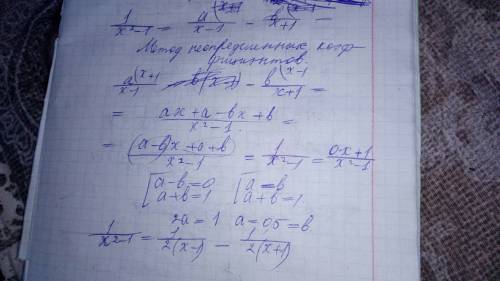 1/(x²-1) = a^(x+1/(x-1) - b^(x-1/(x+1) =
Метод неопределенных коэф-
фициентов.
a^(x+1/(x-1) - b^(x-1/(x+1) =
= (ax+a-bx+b)/(x²-1) =
= ((a-b)x+a+b)/(x²-1) = 1/(x²-1) = (0·x+1)/(x²-1)
[a-b=0 [a=b
a+b=1 a+b=1
2a=1 a=0,5=b
1/(x²-1) = 1/(2(x-1)) - 1/(2(x+1))